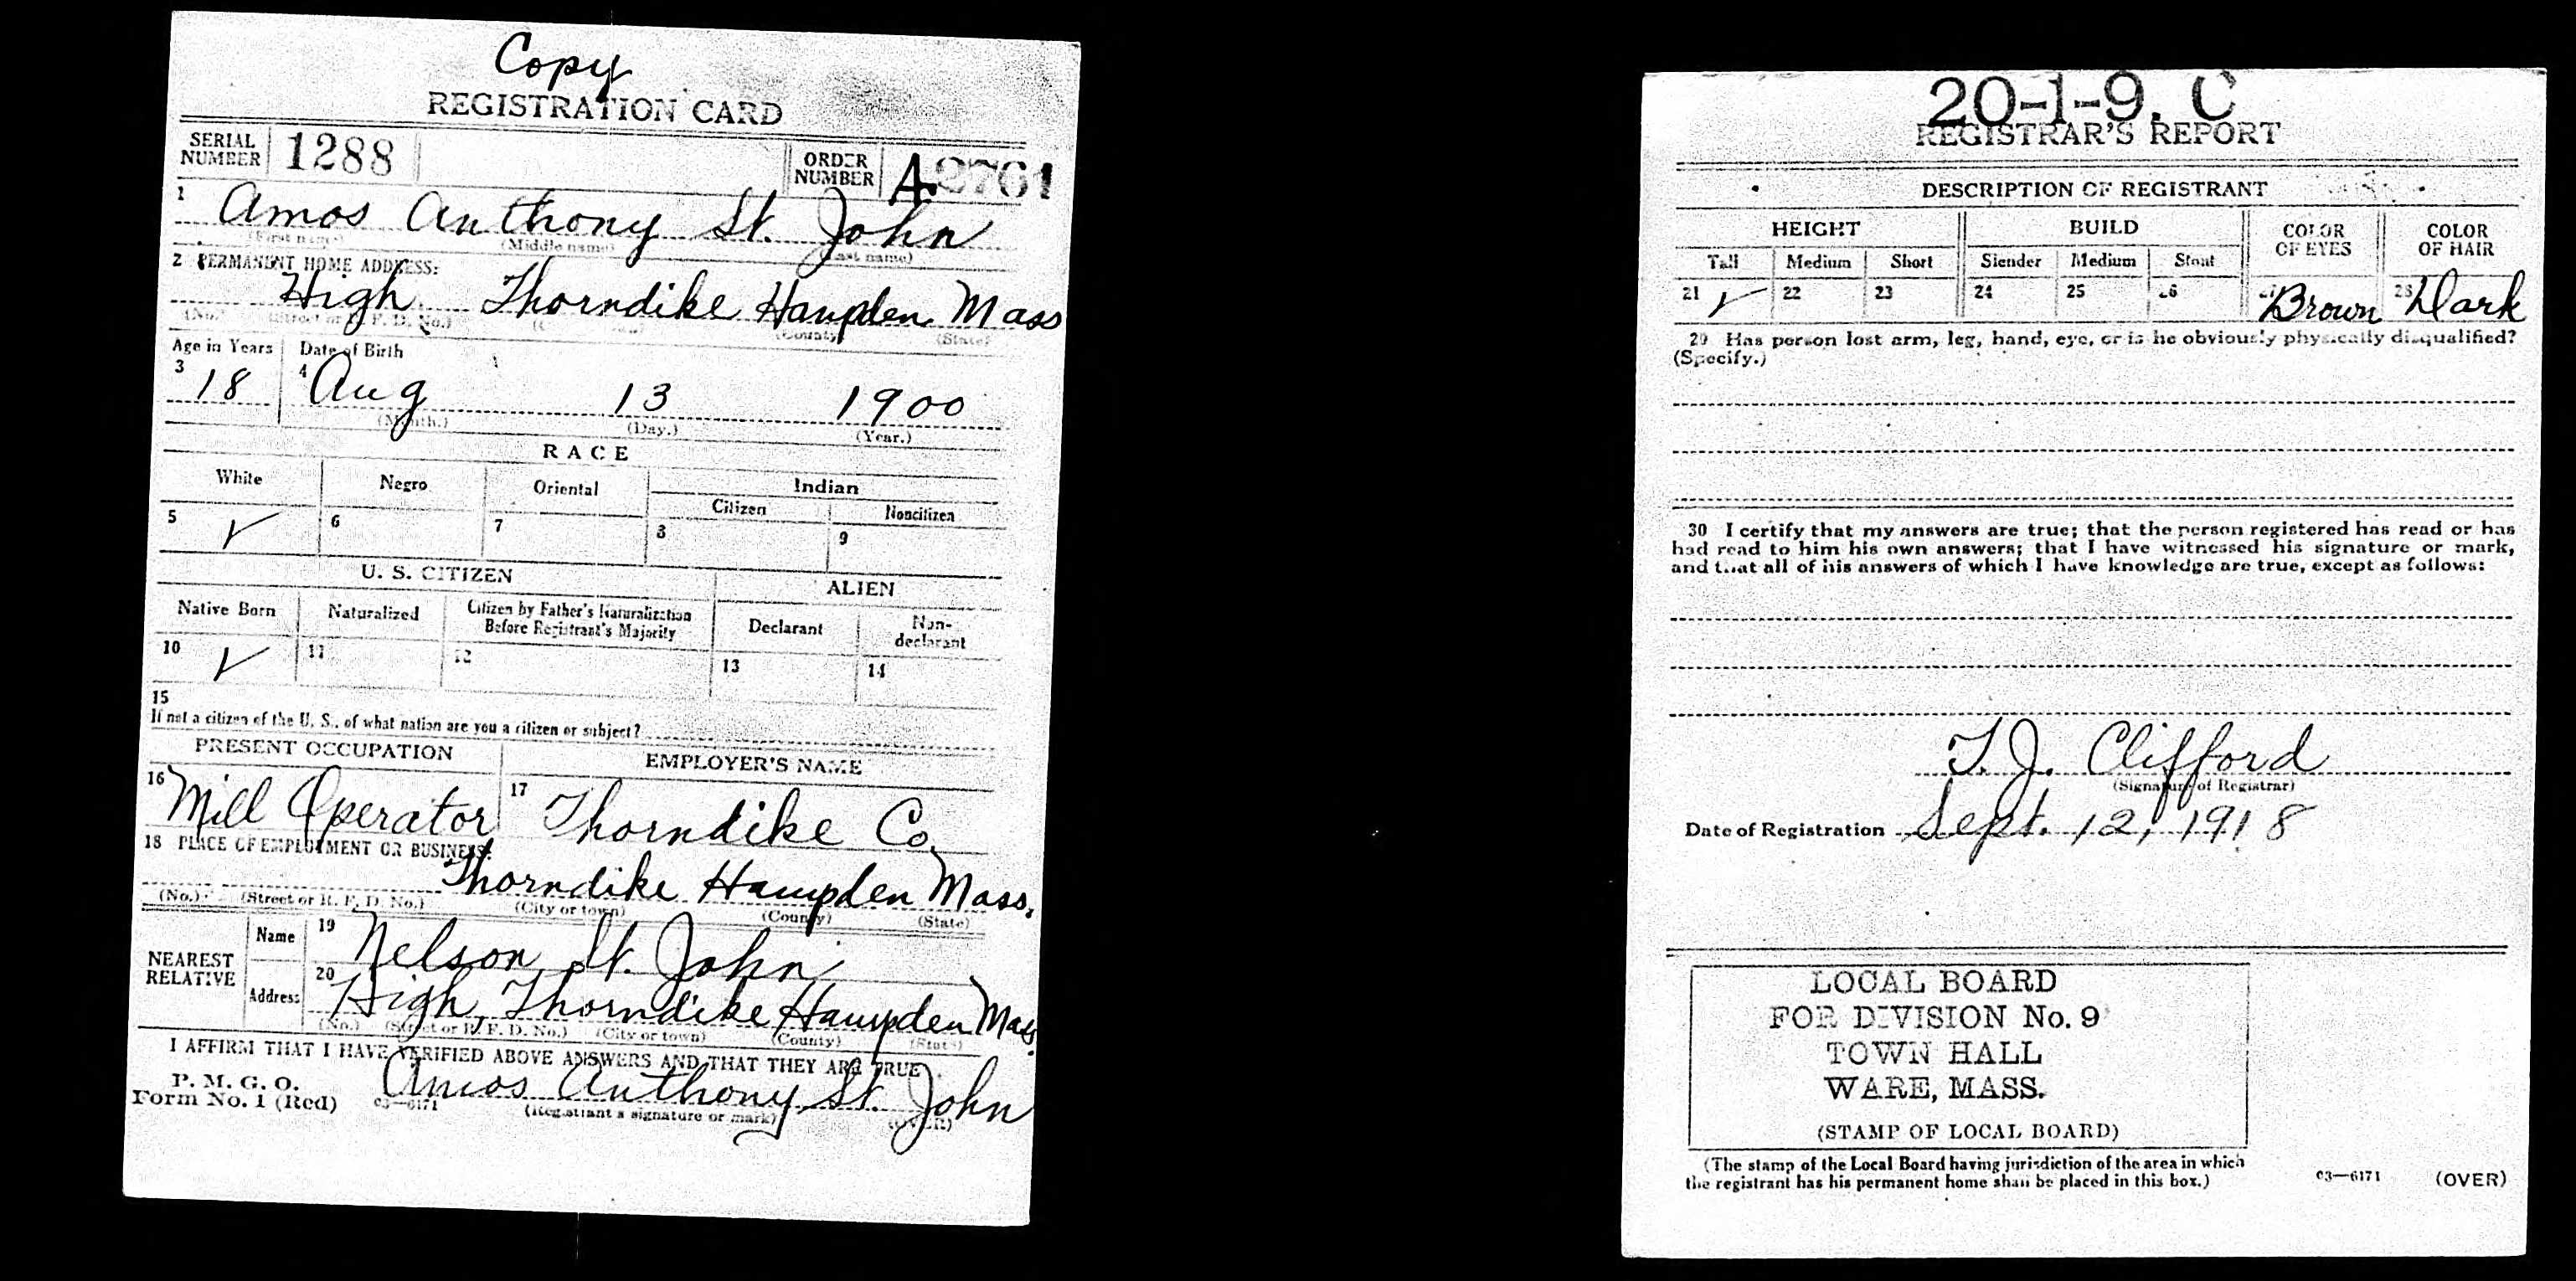 Copy
REGISTRATION CARD
SERIAL NUMBER 1288 ORDER NUMBER A2761
1 Amos Anthony St. John
(First name) (Middle name) (Last name)
2 PERMANENT HOME ADDRESS:
High Thorndike Hampden Mass
(No.) (Street or R. F. D. No.) (County) (State)
Age in Years Date of Birth
3 18 4 Aug 13 1900
(Month.) (Day.) (Year.)
RACE
White Negro Oriental Indian
Citizen Noncitizen
5 ✓ 6 7 8 9
U. S. CITIZEN ALIEN
Native Born Naturalized Citizen by Father's Naturalization Before Registrant's Majority Declarant Non-declarant
10 ✓ 11 12 13 14
15
If not a citizen of the U. S., of what nation are you a citizen or subject?
PRESENT OCCUPATION EMPLOYER'S NAME
16 Mill Operator 17 Thorndike Co.
18 PLACE OF EMPLOYMENT OR BUSINESS:
Thorndike Hampden Mass.
(No.) (Street or R. F. D. No.) (City or town) (County) (State)
NEAREST RELATIVE Name 19 Nelson St. John
Address 20 High, Thorndike Hampden Mass.
(No.) (Street or R. F. D. No.) (City or town) (County) (State)
I AFFIRM THAT I HAVE VERIFIED ABOVE ANSWERS AND THAT THEY ARE TRUE
P. M. G. O.
Form No. 1 (Red) 03—6171 Amos Anthony St. John
(Registrant's signature or mark) (OVER)
20-1-9. C
REGISTRAR'S REPORT
DESCRIPTION OF REGISTRANT
HEIGHT BUILD COLOR OF EYES COLOR OF HAIR
Tall Medium Short Slender Medium Stout
21 ✓ 22 23 24 25 26 27 Brown 28 Dark
29 Has person lost arm, leg, hand, eye, or is he obviously physically disqualified?
(Specify.)
30 I certify that my answers are true; that the person registered has read or has
had read to him his own answers; that I have witnessed his signature or mark,
and that all of his answers of which I have knowledge are true, except as follows:
T. J. Clifford
(Signature of Registrar)
Date of Registration Sept. 12, 1918
LOCAL BOARD
FOR DIVISION No. 9
TOWN HALL
WARE, MASS.
(STAMP OF LOCAL BOARD)
(The stamp of the Local Board having jurisdiction of the area in which
the registrant has his permanent home shall be placed in this box.)
03—6171 (OVER)